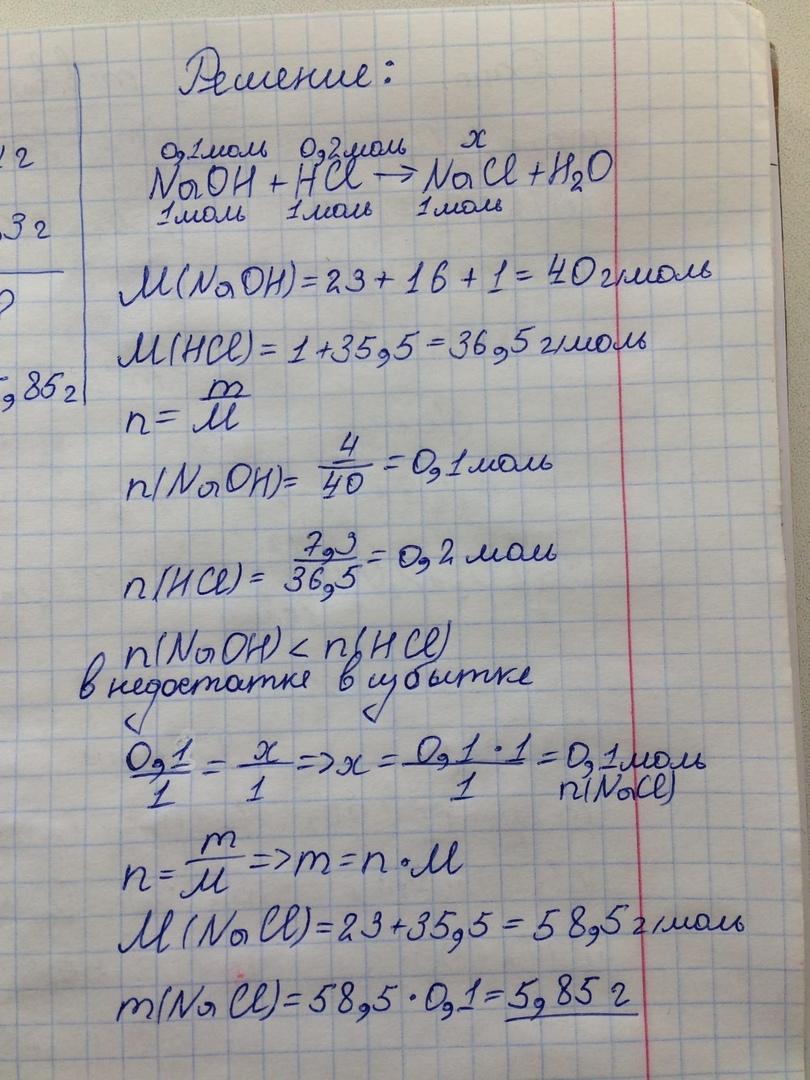 Решение:
г
0,1моль 0,2моль x
NaOH + HCl → NaCl + H2O
1моль 1моль 1моль
3 г
M(NaOH) = 23 + 16 + 1 = 40 г/моль
M(HCl) = 1 + 35,5 = 36,5 г/моль
,85 г
n = m/M
n(NaOH) = 4/40 = 0,1моль
n(HCl) = 7,3/36,5 = 0,2 моль
n(NaOH) < n(HCl)
в недостатке в избытке
0,1/1 = x/1 => x = 0,1 · 1/1 = 0,1моль
n(NaCl)
n = m/M => m = n · M
M(NaCl) = 23 + 35,5 = 58,5 г/моль
m(NaCl) = 58,5 · 0,1 = 5,85 г